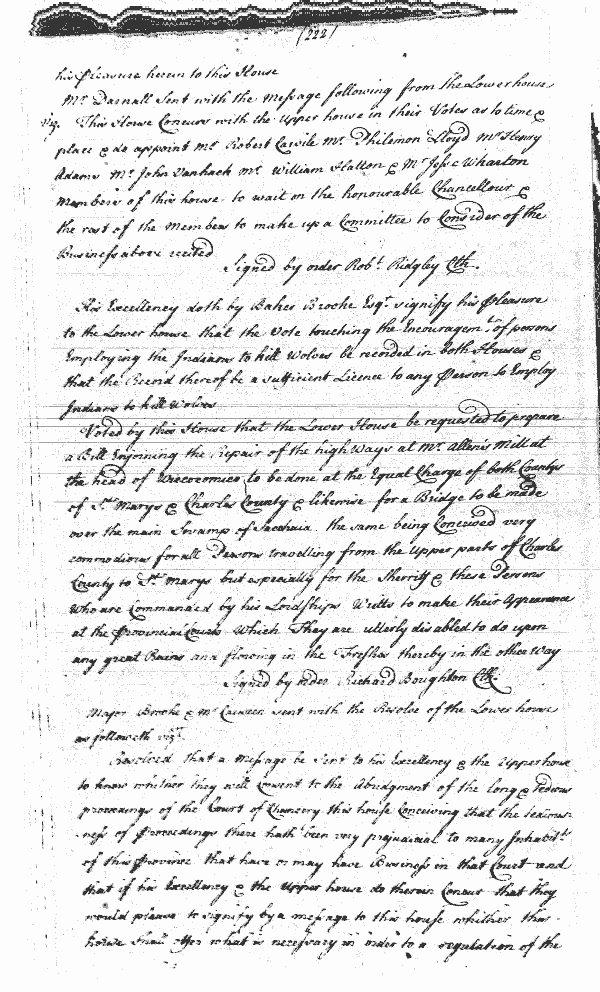 (222)
his Pleasure herein to this House
Mr. Darnall Sent with the Message following from the Lower house
Viz. This House Concurs with the Upper house in their Votes as to time &
place & do appoint Mr. Robert Carvile Mr. Philemon Lloyd Mr. Henry
Adams Mr. John Vanhack Mr. William Hatton & Mr. Jesse Wharton
Members of this house to wait on the honourable Chancellour &
the rest of the Members to make up a Committee to Consider of the
Business above recited
Signed by order Robt. Ridgley Clk.
His Excellency doth by Baker Brooke Esqr. signify his Pleasure
to the Lower house that the Vote touching the Encouragemt. of persons
Employing the Indians to kill Wolves be recorded in both Houses &
that the Record thereof be a sufficient Licence to any Person so Employ
Indians to kill Wolves
Voted by this House that the Lower House be requested to prepare
a Bill Enjoining the Repair of the high Ways at Mr. Allen's Mill at
the head of Wiccocomico to be done at the Equal Charge of both Countys
of St. Marys & Charles County & likewise for a Bridge to be made
over the main Swamp of Sacchaia the same being Conceived very
commodious for all Persons travelling from the upper parts of Charles
County to St. Marys but especially for the Sherriff & those Persons
who are Commanded by his Lordships Writts to make their Appearance
at the Provincial Courts Which They are utterly disabled to do upon
any great Rains and flowing in the Freshes thereby in the other Way
Signed by order Richard Boughton Clk.
Major Brooke & Mr. sent with the Resolve of the Lower house
as followeth vizt.
Resolved that a Message be Sent to his Excellency & the Upper house
to know whether they will Consent to the Abridgment of the long & tedious
proceedings of the Court of Chancery this house Conceiving that the tedious-
ness of Proceedings there hath been very prejudicial to many Inhabitts
of this Province that have or may have Business in that Court and
that if his Excellency & the Upper house do therein Concur that they
would please to signify by a message to this house whither this
house shall offer what is necessary in order to a regulation of the